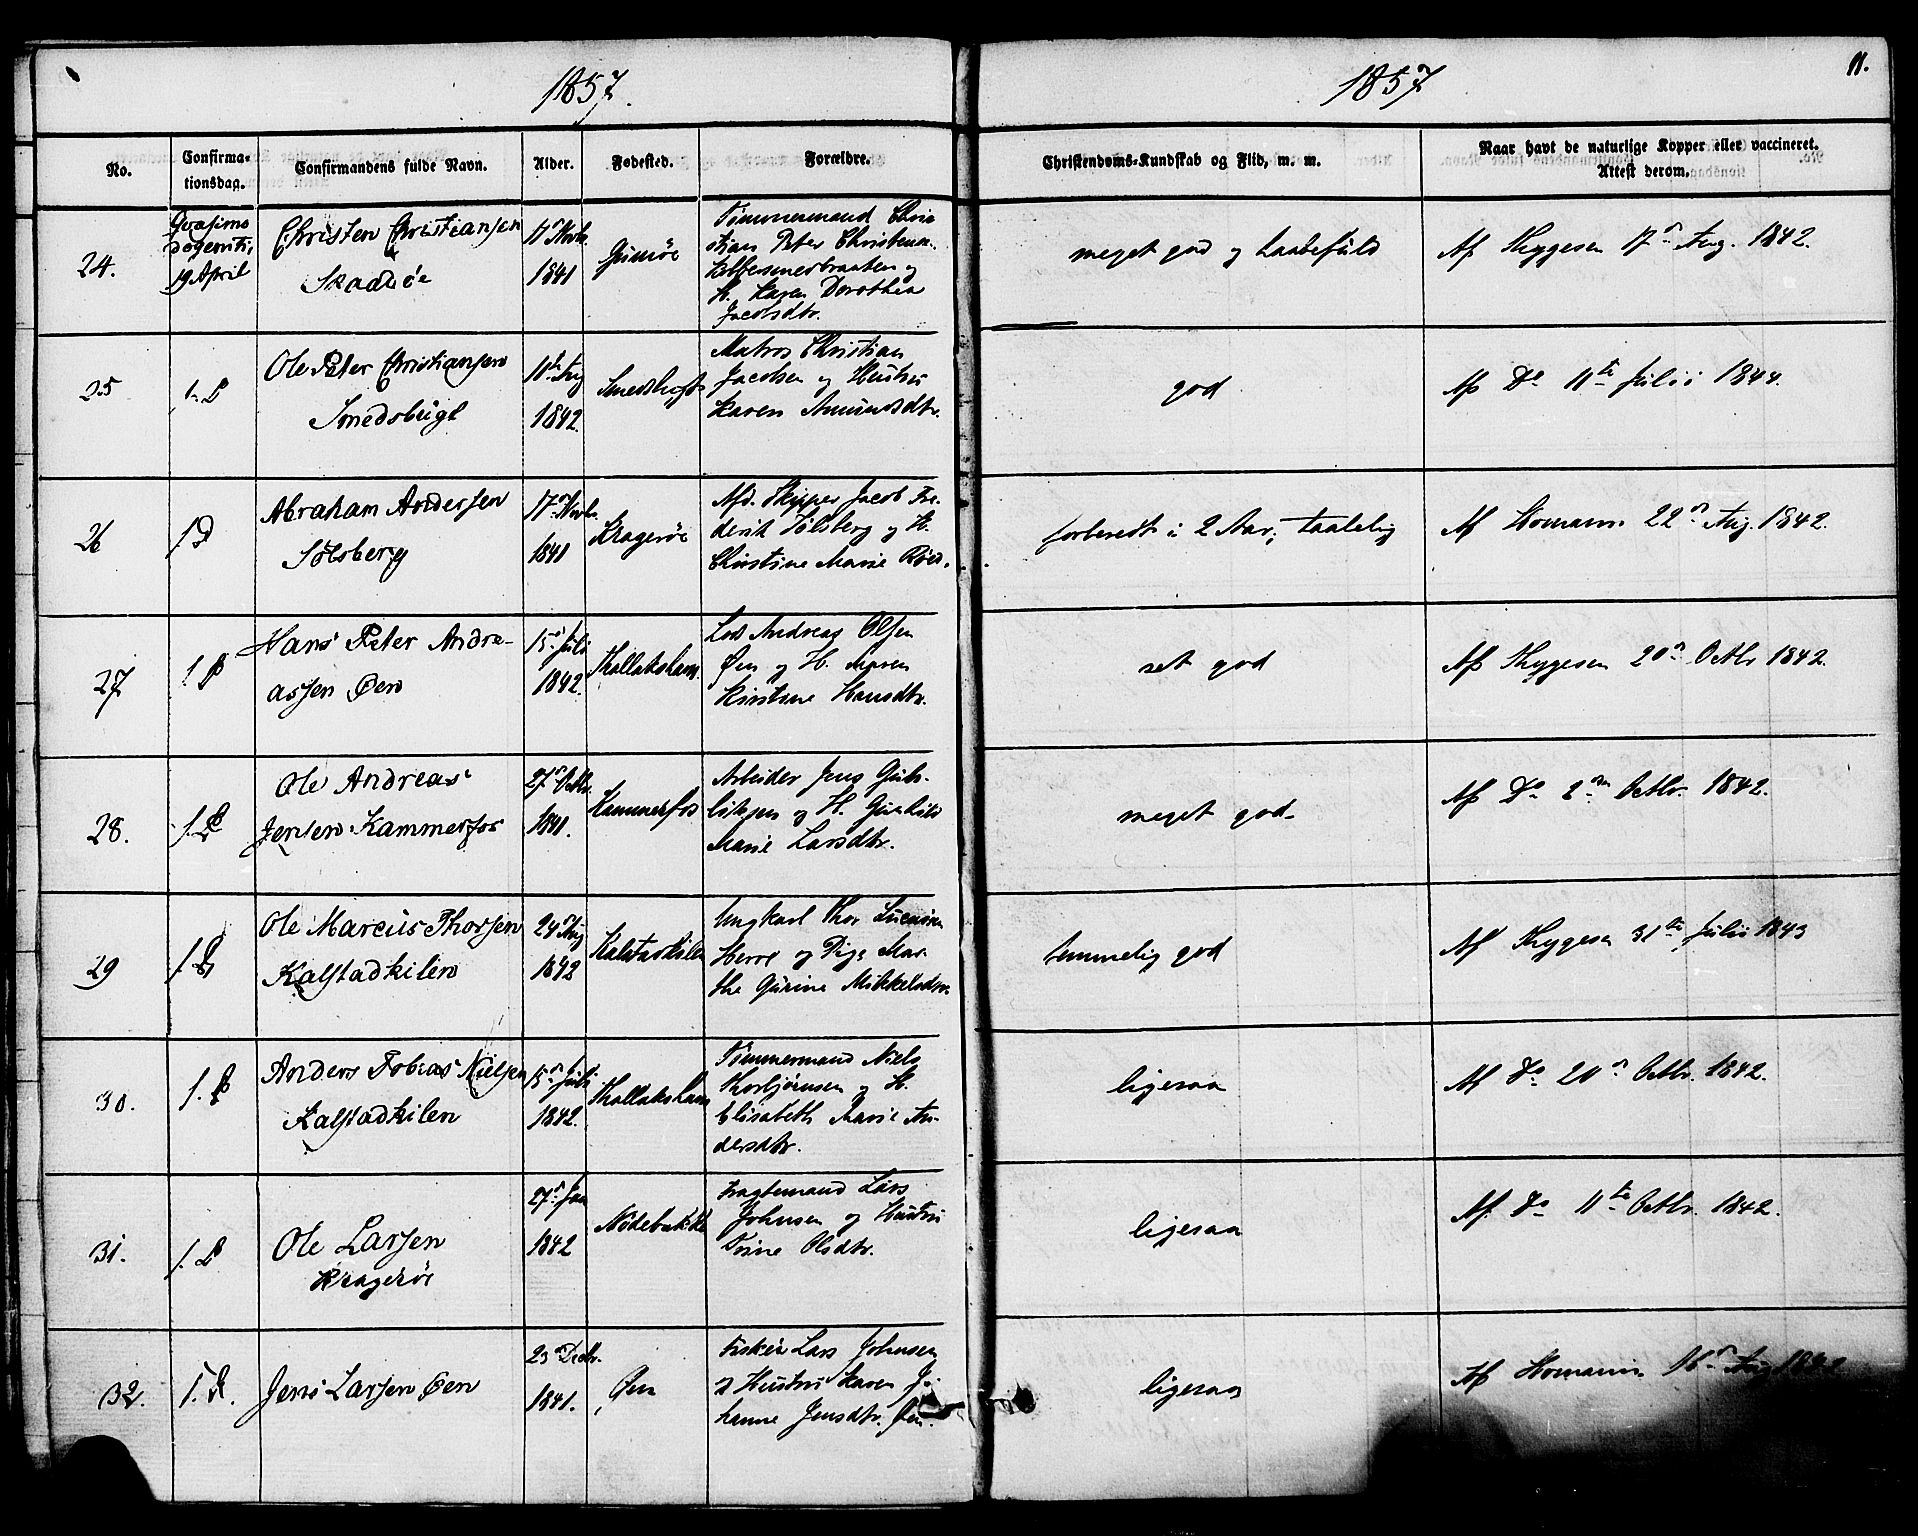 1857.
1857
11.
No.
Confirma-
tionsdag.
Confirmandens fulde Navn.
Alder.
Fødested.
Forældre.
Christendoms-Kundskab og Flid, m. m.
Naar havt de naturlige Kopper eller vaccineret.
Attest derom.
24.
19 April
Christen Christiansen
Skaadøe
11 Novbr.
1841
Gumøe
Tømmermand Chris
tian Peter Christensen
H. Karen Dorothea
Jacobsdtr.
meget god og haabefuld
Af Thygesen 17 Aug. 1842.
25
1. D
Ole Peter Christiansen
Smedsbugt
10de Aug
1842.
Smedsbugt
Matros Christian
Jacobsen og Hustru
Karen Amundsdtr.
god
Af Do 11te Julii 1844.
26
1 D
Abraham Andersen
Sölsberg
17 Novbr.
1841
Kragerøe
Afd. Skipper Jacob Fre-
derik Sölsberg og H.
Christine Marie Röed.
forberedt i 2 Aar, taalelig
Af Homann 22 Aug. 1842.
27
1. D
Hans Peter Andre-
assen Øen
15 Juli
1842.
Thallaksham.
Lods Andreas Olsen
Øen og H. Maren
Kirstine Hansdtr.
ret god
Af Thygesen 20 Octbr 1842.
28.
1. D
Ole Andreas
Jensen Kammerfos
27 Octbr.
1841.
Kammerfos
Arbeider Jens Gub-
H. Gunhild
Marie Larsdtr.
meget god.
Af Do 2den Octbr. 1842.
29
1. D
Ole Marcus Thorsen
Kalstadkilen
24 Aug
1842
Kalstadkilen
Ungkarl Thor
Herre og Pige Mar-
the Gurine Mikkelsdtr.
temmelig god
Af Thygesen 31te Julii 1843
30.
1. D
Anders Tobias Nielsen
Kalstadkilen
15 Juli
1842.
Thallaksham
Tømmermand Niels
Thorbjörnsen og H.
Elisabeth Marie An-
dersdtr.
ligesaa
Af Do 20 Octbr. 1842.
31.
1. D
Ole Larsen
Kragerøe
27 Jan
1842
Lars
Johnsen og Hustru
Trine Olsdtr.
ligesaa
Af Do 11te Octbr. 1842.
32.
1. D.
Jens Larsen Øen
23 Decbr.
1841.
Øen
Fisker Lars Johnsen
og Hustru Karen Jo-
hanne Jensdtr. Øen.
ligesaa
Af Homann 16 Aug 1842